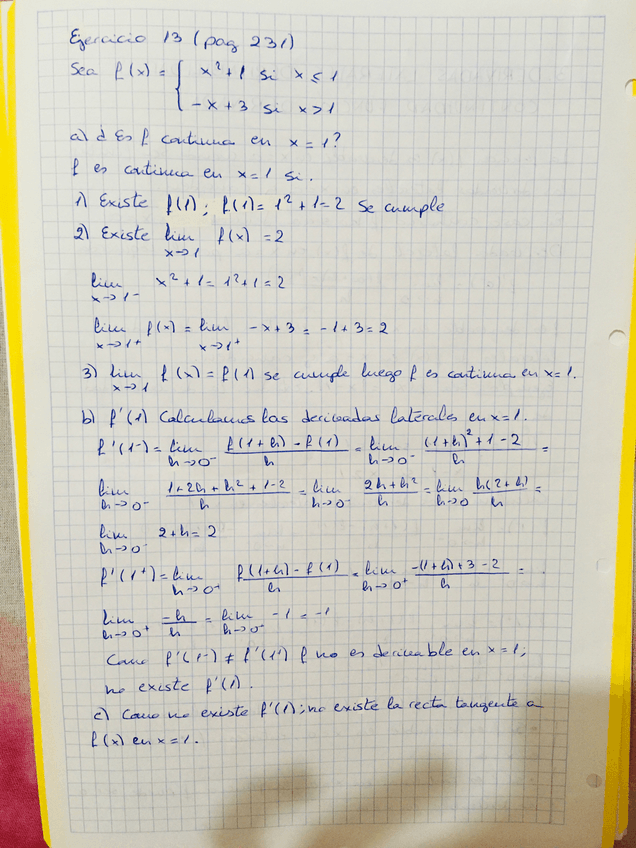 Ejercicio 13 (pag 231)
Sea f(x) = { x²+1 si x ≤ 1
-x+3 si x>1
a) ¿ Es f continua en x=1?
f es continua en x=1 si.
1) Existe f(1); f(1)= 1²+1=2 se cumple
2) Existe lim x→1 f(x) = 2
lim x→1- x²+1= 1²+1=2
lim x→1+ f(x) = lim x→1+ -x+3 = -1+3=2
3) lim x→1 f(x) = f(1) se cumple luego f es continua en x=1.
b) f'(1) Calculamos las derivadas laterales en x=1.
f'(1-) = lim h→0- (f(1+h)-f(1))/h = lim h→0- ((1+h)²+1-2)/h =
lim h→0- (1+2h+h²+1-2)/h = lim h→0- (2h+h²)/h = lim h→0 h(2+h)/h =
lim h→0- 2+h=2
f'(1+) = lim h→0+ (f(1+h)-f(1))/h = lim h→0+ (-(1+h)+3-2)/h =
lim h→0+ -h/h = lim h→0- -1 = -1
Como f'(1-) ≠ f'(1+) f no es derivable en x=1;
no existe f'(1).
c) Como no existe f'(1); no existe la recta tangente a
f(x) en x=1.